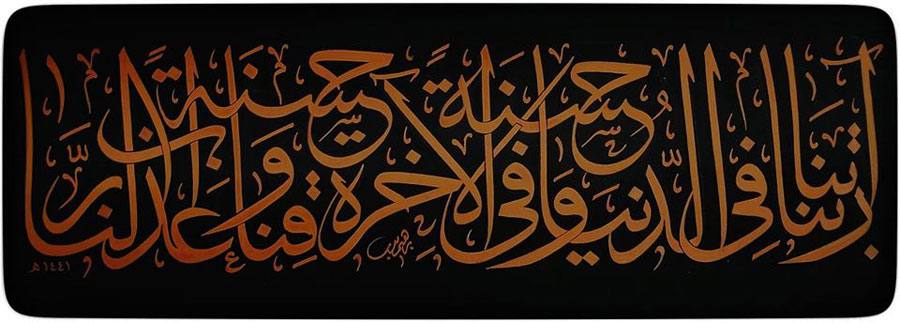 ربنا آتنا في الدنيا حسنة وفي الآخرة حسنة وقنا عذاب النار
١٤٤١ هـ